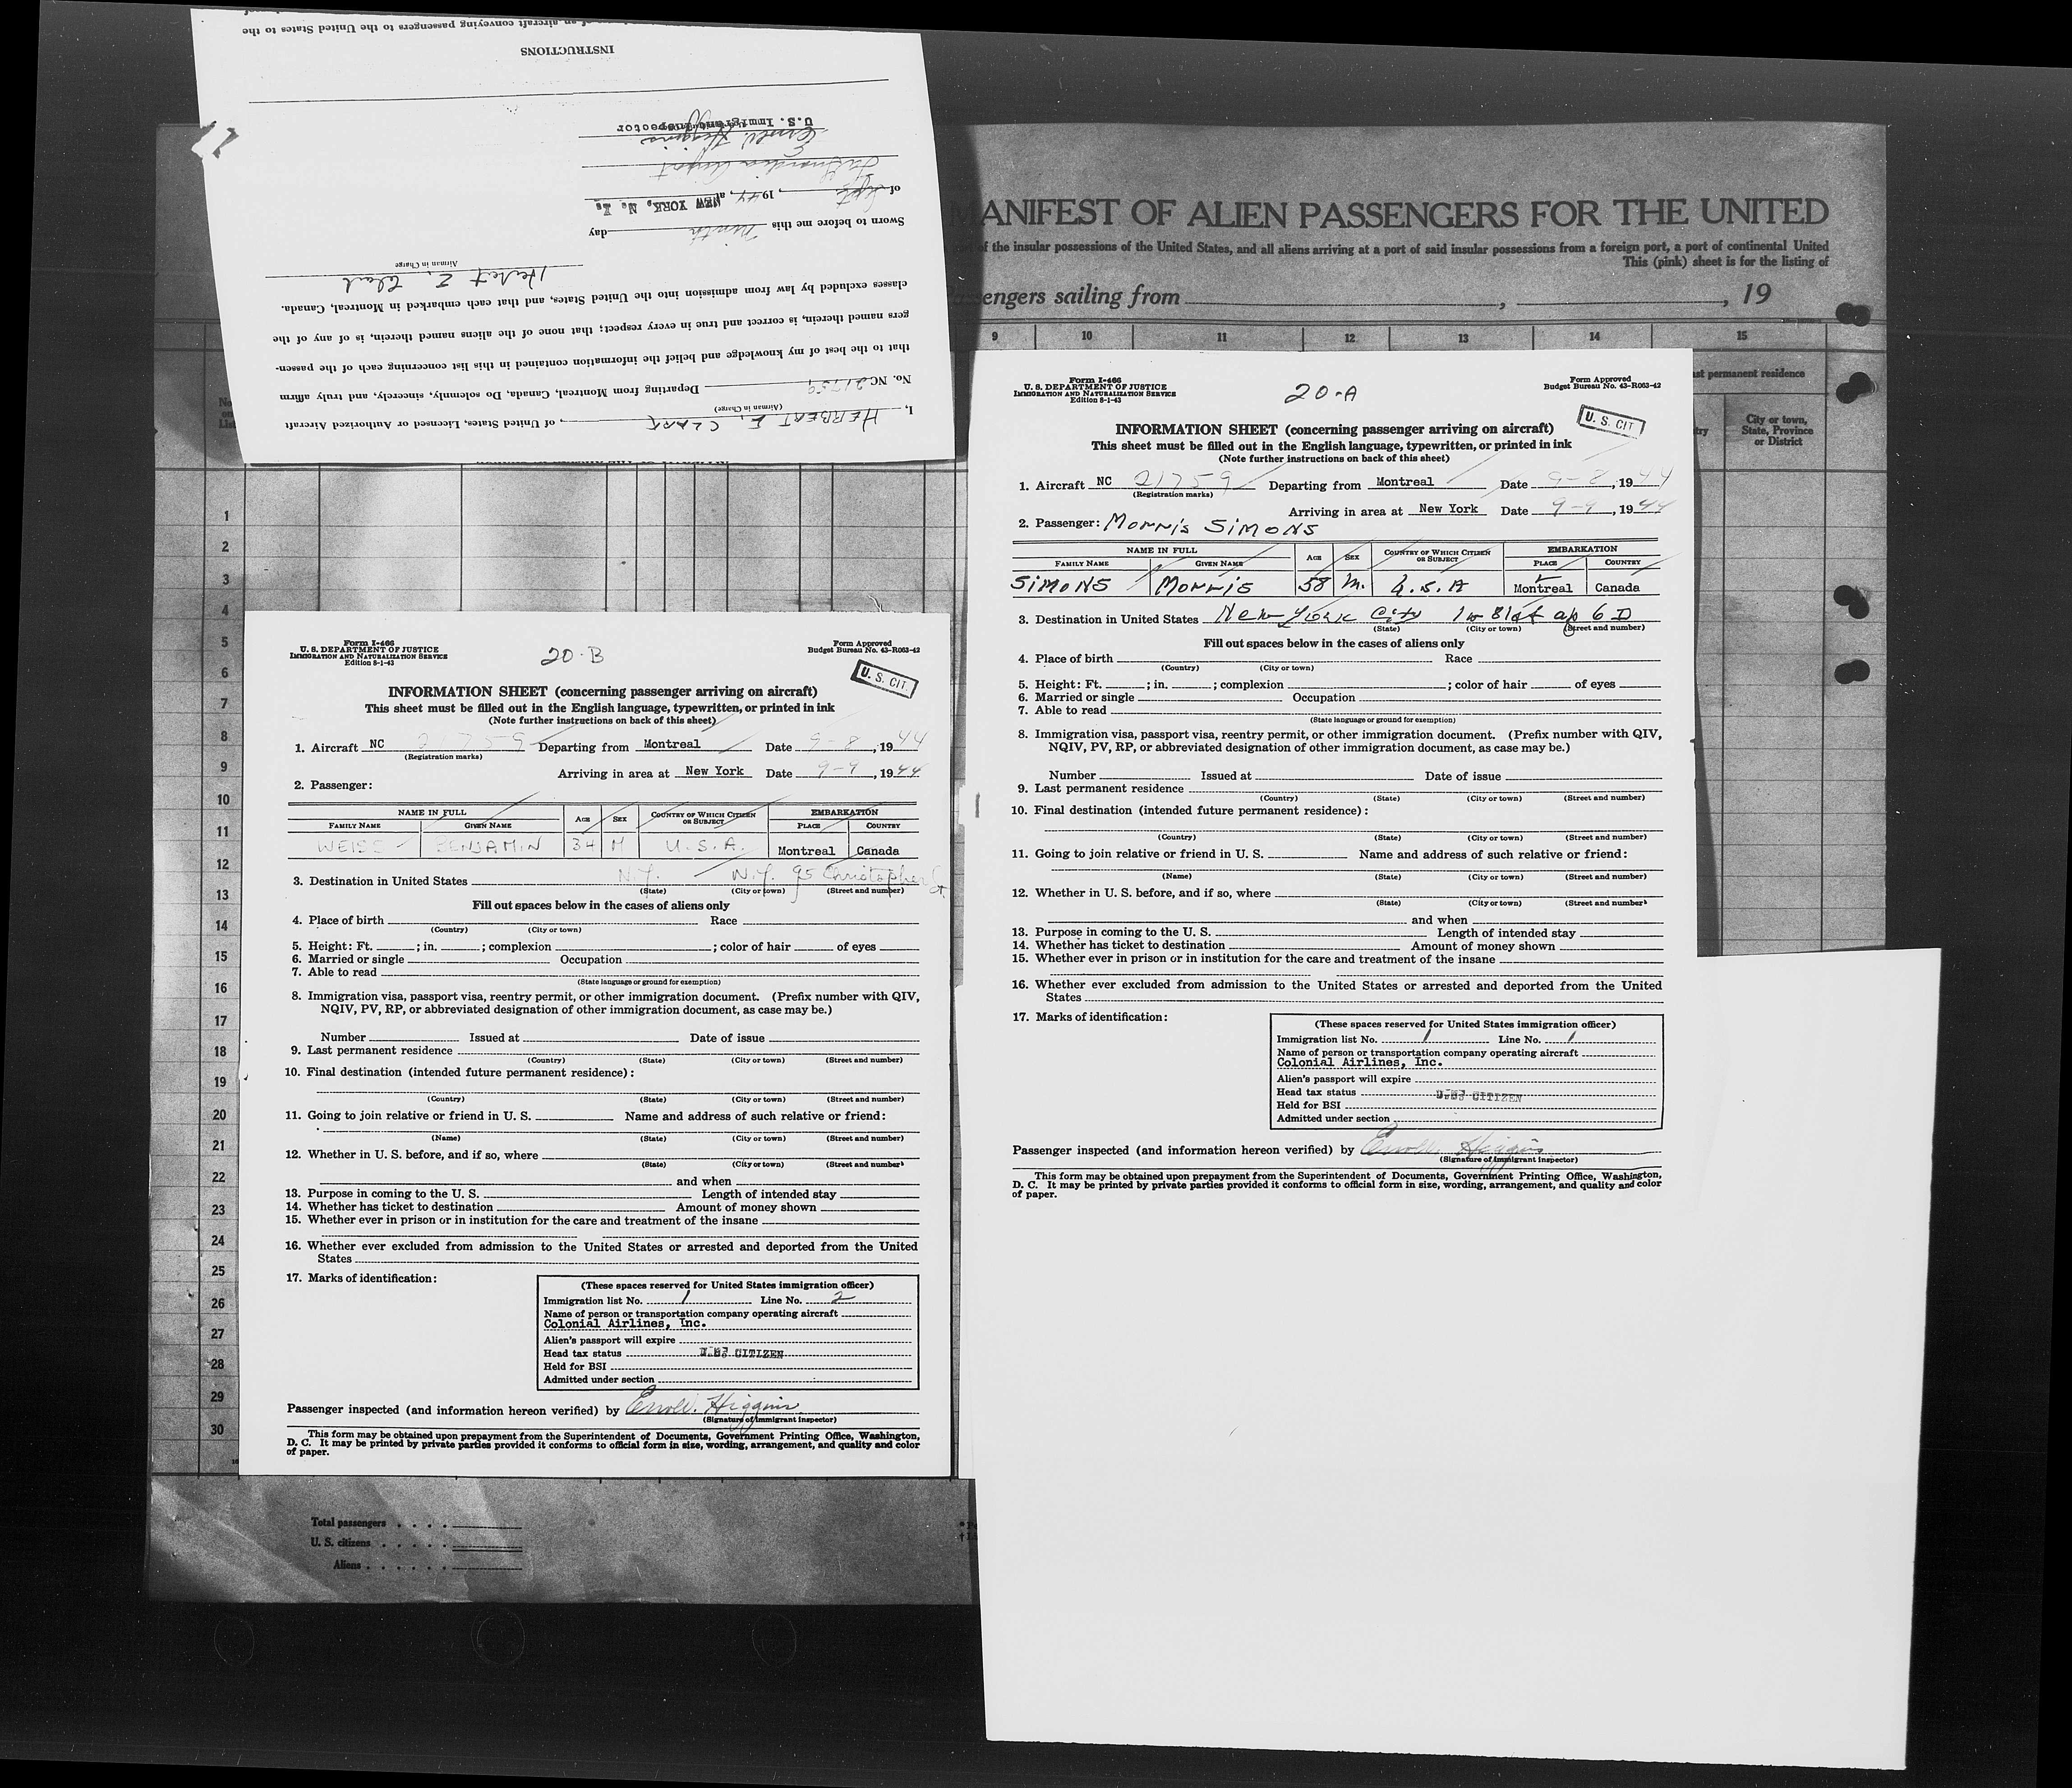 an aircraft conveying passengers to the United States to the
INSTRUCTIONS
U.S. Immigrant Inspector
Errol W. Higgins
LaGuardia Airport
of Sept., 1944, at NEW YORK, N. Y.
Sworn to before me this Ninth day
Airman in Charge
Herbert E. Clark
classes excluded by law from admission into the United States, and that each embarked in Montreal, Canada.
gers named therein, is correct and true in every respect; that none of the aliens named therein, is of any of the
that to the best of my knowledge and belief the information contained in this list concerning each of the passen-
No. NC 21759 Departing from Montreal, Canada, Do solemnly, sincerely, and truly affirm
(Airman in Charge)
I, HERBERT E. CLARK, of United States, Licensed or Authorized Aircraft
MANIFEST OF ALIEN PASSENGERS FOR THE UNITED
of the insular possessions of the United States, and all aliens arriving at a port of said insular possessions from a foreign port, a port of continental United
This (pink) sheet is for the listing of
passengers sailing from , , 19
9 10 11 12 13 14 15
permanent residence
City or town,
State, Province
or District
1
2
3
4
5
6
7
8
9
10
11
12
13
14
15
16
17
18
19
20
21
22
23
24
25
26
27
28
29
30
Total passengers
U. S. citizens
Aliens
Form I-466
U. S. DEPARTMENT OF JUSTICE
IMMIGRATION AND NATURALIZATION SERVICE
Edition 8-1-43
20-B
Form Approved
Budget Bureau No. 43-R063-42
U. S. CIT.
INFORMATION SHEET (concerning passenger arriving on aircraft)
This sheet must be filled out in the English language, typewritten, or printed in ink
(Note further instructions on back of this sheet)
1. Aircraft NC 21759 Departing from Montreal Date 9-8, 1944
(Registration marks)
Arriving in area at New York Date 9-9, 1944
2. Passenger:
NAME IN FULL AGE SEX COUNTRY OF WHICH CITIZEN OR SUBJECT EMBARKATION
FAMILY NAME GIVEN NAME PLACE COUNTRY
WEISS BENJAMIN 34 M U.S.A. Montreal Canada
3. Destination in United States N.Y. N.Y. 95 Christopher St.
(State) (City or town) (Street and number)
Fill out spaces below in the cases of aliens only
4. Place of birth Race
(Country) (City or town)
5. Height: Ft. ; in. ; complexion ; color of hair of eyes
6. Married or single Occupation
7. Able to read
(State language or ground for exemption)
8. Immigration visa, passport visa, reentry permit, or other immigration document. (Prefix number with QIV,
NQIV, PV, RP, or abbreviated designation of other immigration document, as case may be.)
Number Issued at Date of issue
9. Last permanent residence
(Country) (State) (City or town) (Street and number)
10. Final destination (intended future permanent residence):
(Country) (State) (City or town) (Street and number)
11. Going to join relative or friend in U. S. Name and address of such relative or friend:
(Name) (State) (City or town) (Street and number)
12. Whether in U. S. before, and if so, where
(State) (City or town) (Street and number)
and when
13. Purpose in coming to the U. S. Length of intended stay
14. Whether has ticket to destination Amount of money shown
15. Whether ever in prison or in institution for the care and treatment of the insane
16. Whether ever excluded from admission to the United States or arrested and deported from the United
States
17. Marks of identification:
(These spaces reserved for United States immigration officer)
Immigration list No. 1 Line No. 2
Name of person or transportation company operating aircraft
Colonial Airlines, Inc.
Alien's passport will expire
Head tax status U.S. CITIZEN
Held for BSI
Admitted under section
Passenger inspected (and information hereon verified) by Errol W. Higgins
(Signature of immigrant inspector)
This form may be obtained upon prepayment from the Superintendent of Documents, Government Printing Office, Washington,
D. C. It may be printed by private parties provided it conforms to official form in size, wording, arrangement, and quality and color
of paper.
Form I-466
U. S. DEPARTMENT OF JUSTICE
IMMIGRATION AND NATURALIZATION SERVICE
Edition 8-1-43
20-A
Form Approved
Budget Bureau No. 43-R063-42
U. S. CIT
INFORMATION SHEET (concerning passenger arriving on aircraft)
This sheet must be filled out in the English language, typewritten, or printed in ink
(Note further instructions on back of this sheet)
1. Aircraft NC 21759 Departing from Montreal Date 9-8, 1944
(Registration marks)
Arriving in area at New York Date 9-9, 1944
2. Passenger: Morris SiMONS
NAME IN FULL AGE SEX COUNTRY OF WHICH CITIZEN OR SUBJECT EMBARKATION
FAMILY NAME GIVEN NAME PLACE COUNTRY
SiMONS Morris 58 M. U.S.A Montreal Canada
3. Destination in United States New York City 1 W 81st ap 6 D
(State) (City or town) (Street and number)
Fill out spaces below in the cases of aliens only
4. Place of birth Race
(Country) (City or town)
5. Height: Ft. ; in. ; complexion ; color of hair of eyes
6. Married or single Occupation
7. Able to read
(State language or ground for exemption)
8. Immigration visa, passport visa, reentry permit, or other immigration document. (Prefix number with QIV,
NQIV, PV, RP, or abbreviated designation of other immigration document, as case may be.)
Number Issued at Date of issue
9. Last permanent residence
(Country) (State) (City or town) (Street and number)
10. Final destination (intended future permanent residence):
(Country) (State) (City or town) (Street and number)
11. Going to join relative or friend in U. S. Name and address of such relative or friend:
(Name) (State) (City or town) (Street and number)
12. Whether in U. S. before, and if so, where
(State) (City or town) (Street and number)
and when
13. Purpose in coming to the U. S. Length of intended stay
14. Whether has ticket to destination Amount of money shown
15. Whether ever in prison or in institution for the care and treatment of the insane
16. Whether ever excluded from admission to the United States or arrested and deported from the United
States
17. Marks of identification:
(These spaces reserved for United States immigration officer)
Immigration list No. 1 Line No. 1
Name of person or transportation company operating aircraft
Colonial Airlines, Inc.
Alien's passport will expire
Head tax status U.S. CITIZEN
Held for BSI
Admitted under section
Passenger inspected (and information hereon verified) by Errol W. Higgins
(Signature of immigrant inspector)
This form may be obtained upon prepayment from the Superintendent of Documents, Government Printing Office, Washington,
D. C. It may be printed by private parties provided it conforms to official form in size, wording, arrangement, and quality and color
of paper.